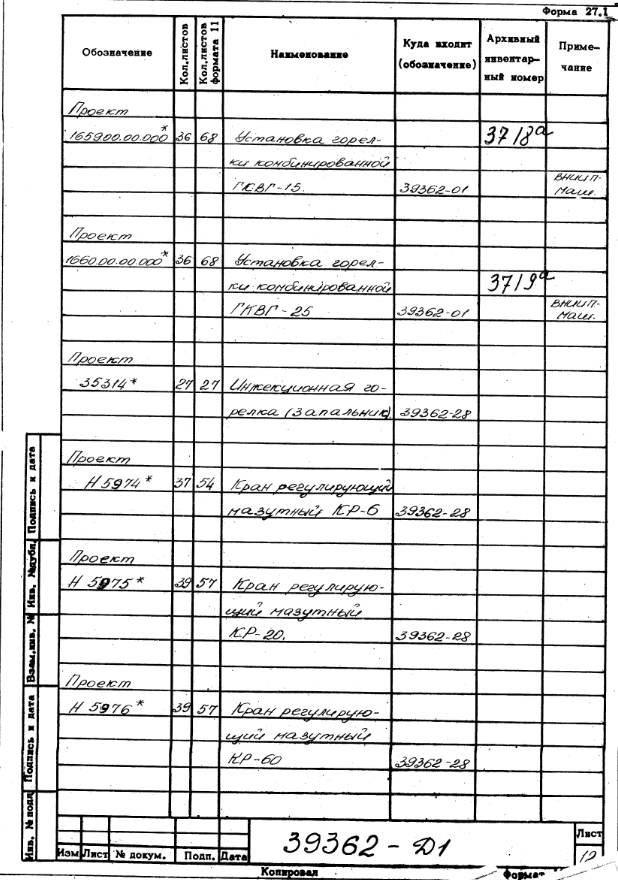 Форма 27.1
Обозначение
Кол.листов
Кол.листов формата 11
Наименование
Куда входит (обозначение)
Архивный инвентар-ный номер
Приме-чание
Проект
165900.00.000* 36 68 Установка горел- 3718а
ки комбинированной
ГКВГ-15. 39362-01 ВНИИП-
Маш.
Проект
1660.00.00.000* 36 68 Установка горел-
ки комбинированной 3719а
ГКВГ-25 39362-01 ВНИИП-
Маш.
Проект
35314* 27 27 Инжекционная го-
релка (запальник) 39362-28
Проект
Н 5974* 37 54 Кран регулирующий
мазутный КР-6 39362-28
Проект
Н 5975* 39 57 Кран регулирую-
щий мазутный
КР-20. 39362-28
Проект
Н 5976* 39 57 Кран регулирую-
щий мазутный
КР-60 39362-28
Подпись и дата
Инв. №дубл.
Взам.инв. №
Подпись и дата
Инв. № подл
Изм Лист № докум. Подп. Дата
39362 - Д1
Лист
12
Копировал Формат